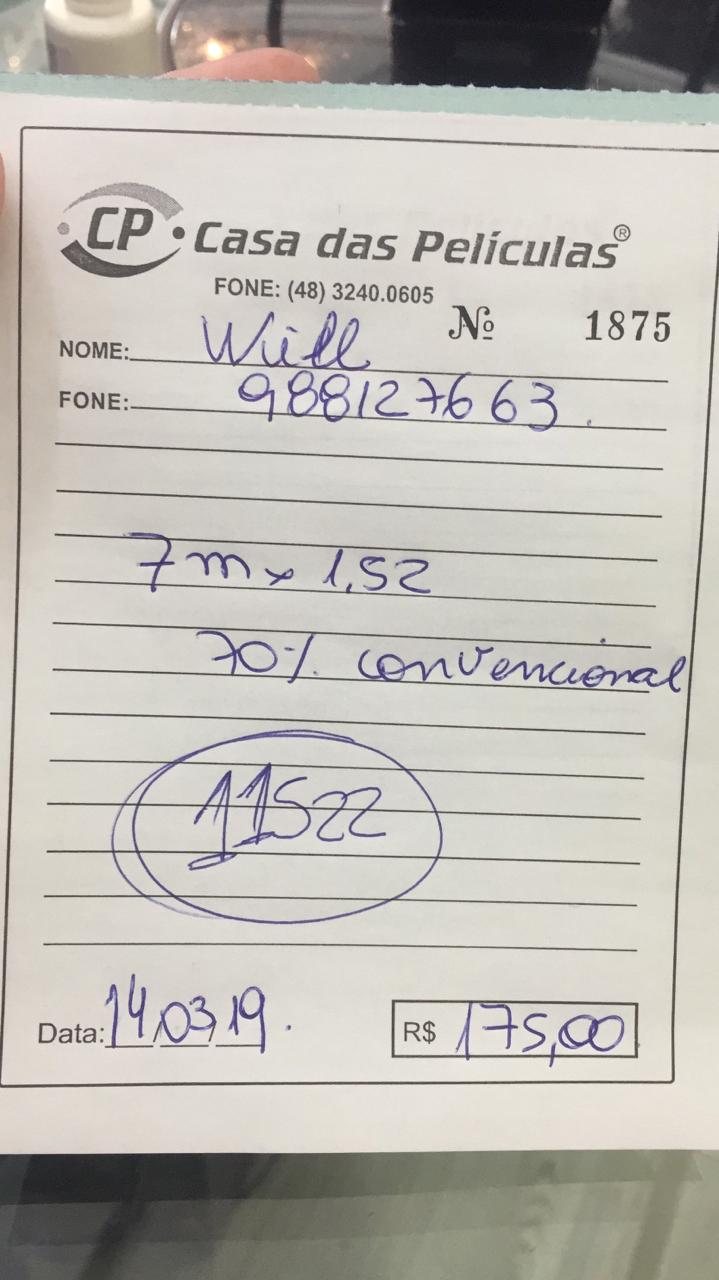 CP Casa das Películas®
FONE: (48) 3240.0605
Nº 1875
NOME: Will
FONE: 988127663.
7m x 1,52
70% convencional
11522
Data: 14/03/19.
R$ 175,00